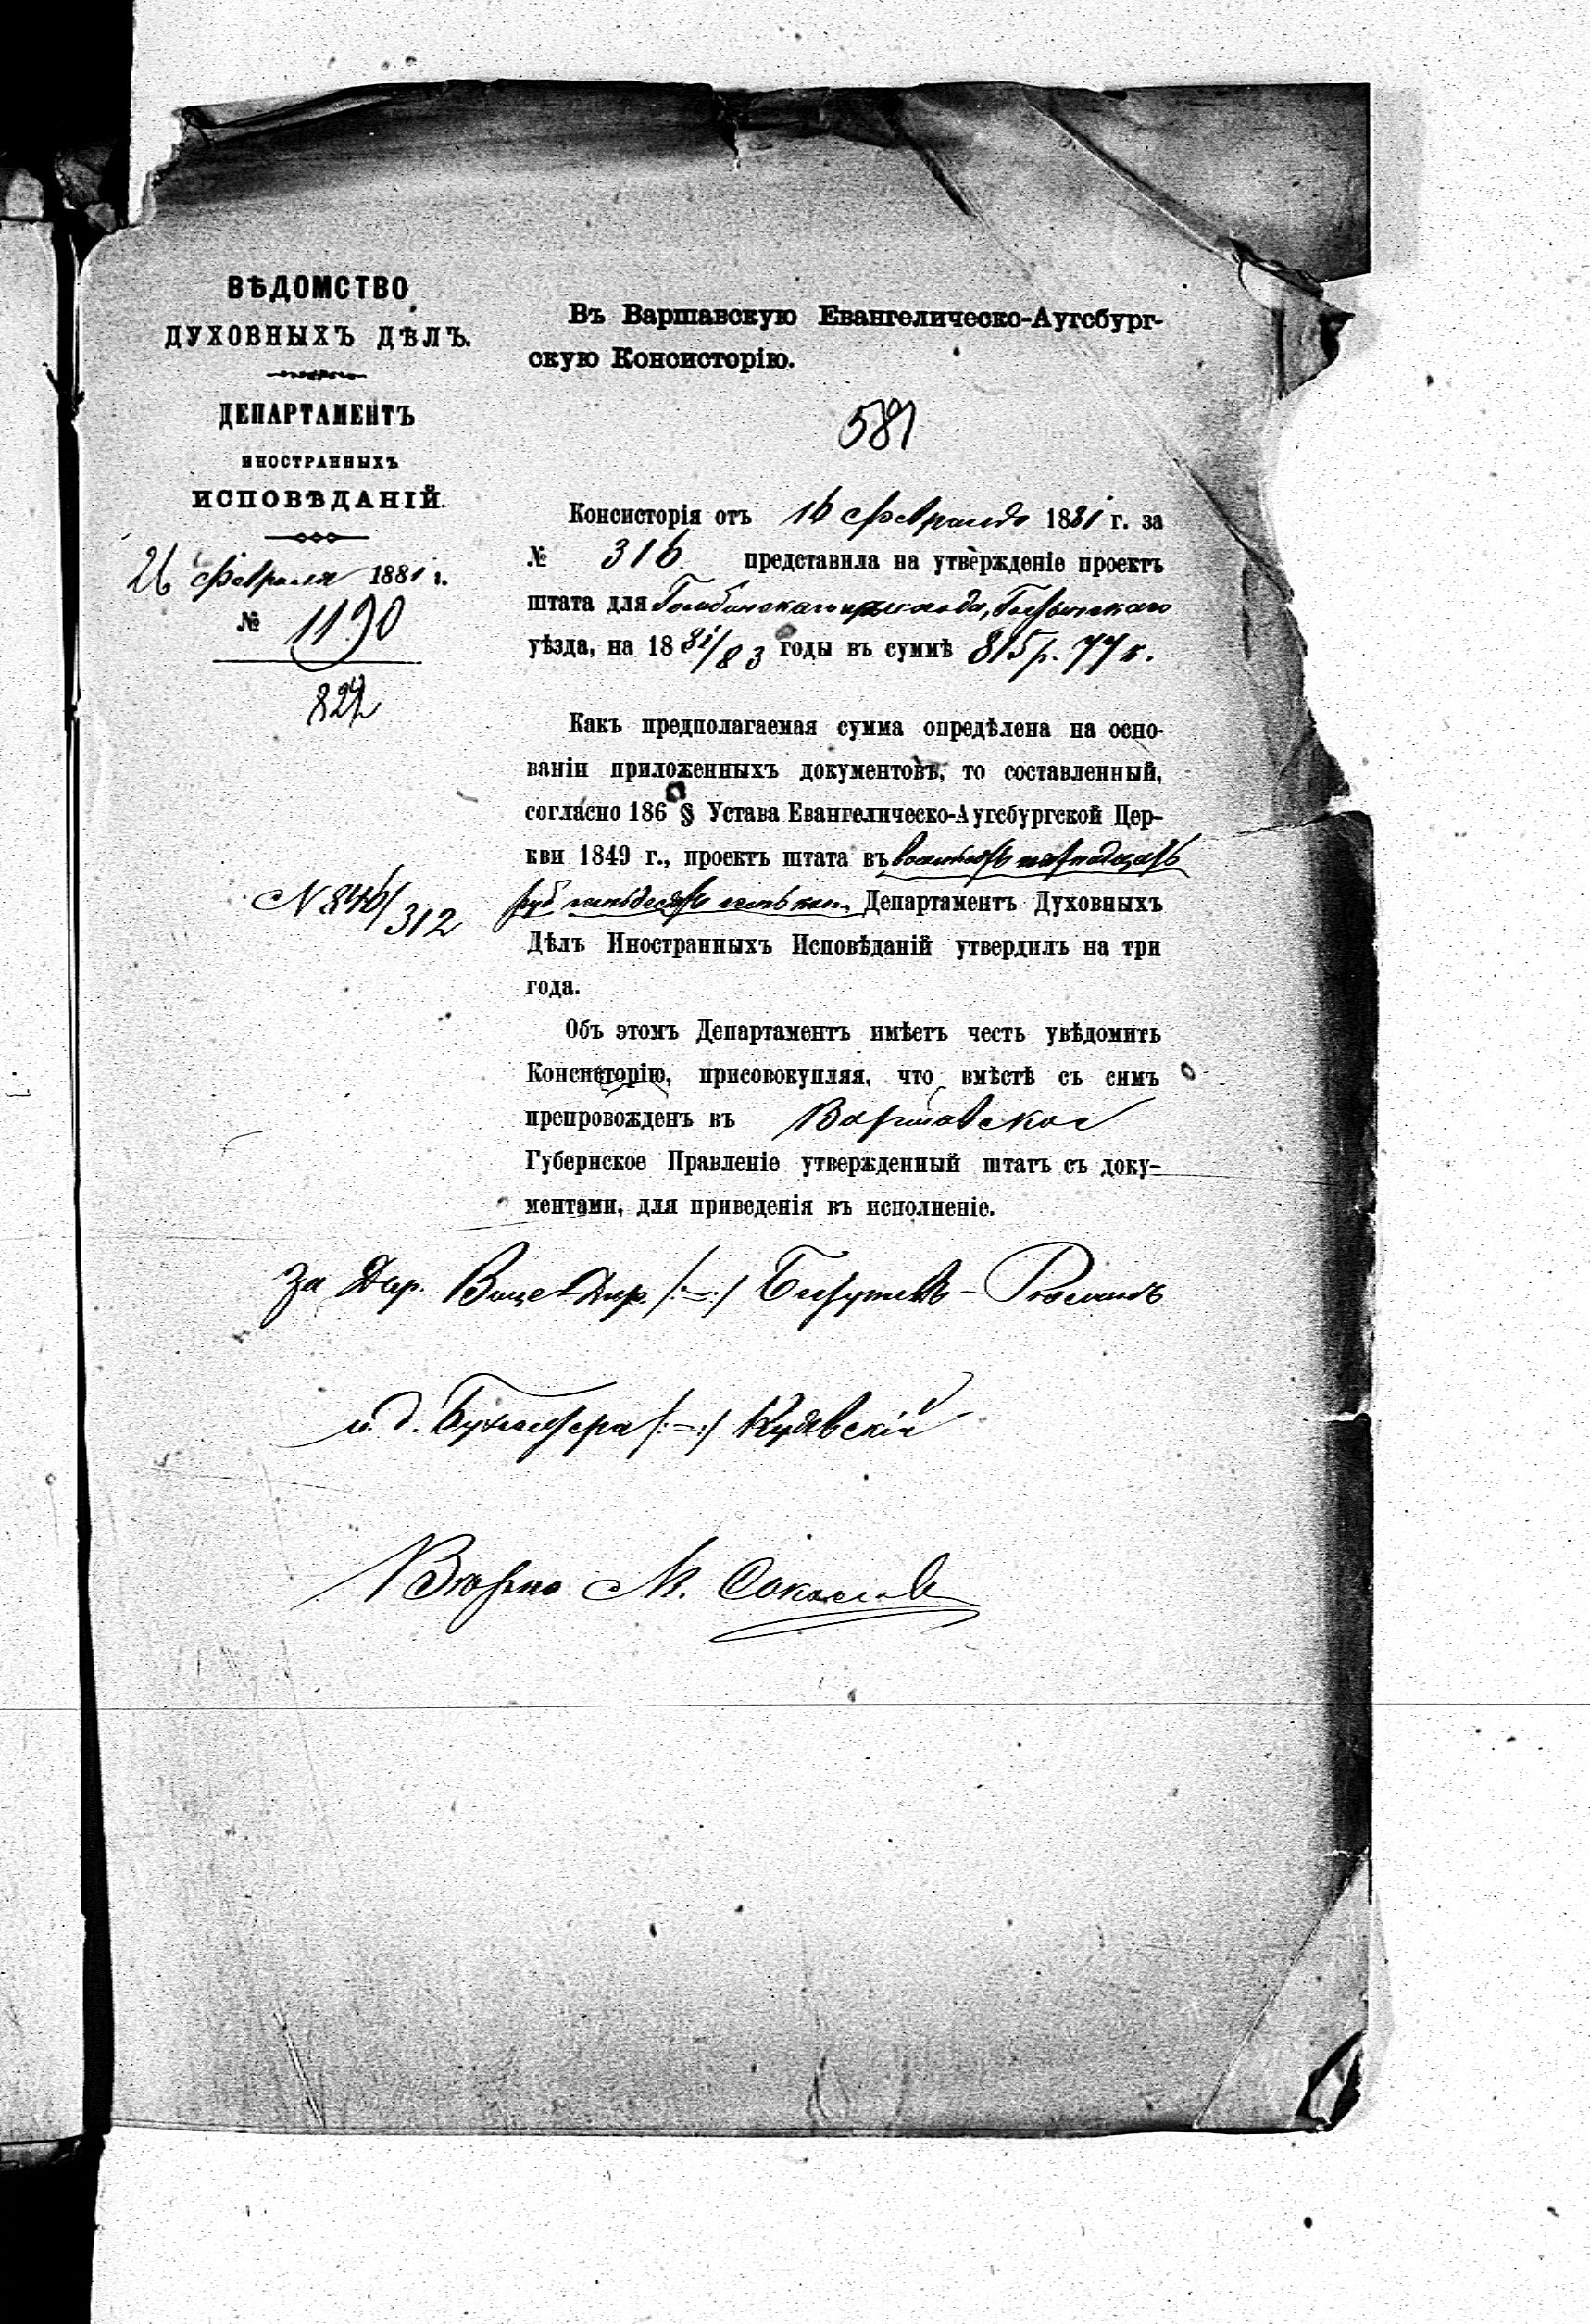 ВѢДОМСТВО
ДУХОВНЫХЪ ДѢЛЪ.
ДЕПАРТАМЕНТЪ
ИНОСТРАННЫХЪ
ИСПОВѢДАНІЙ.
26 февраля 1881 г.
№ 1190
827
N 846/312
Въ Варшавскую Евангелическо-Аугсбург-
скую Консисторію.
581
Консисторія отъ 16 февраля 1881 г. за
№ 316 представила на утвержденіе проектъ
штата для Гомбинскаго прихода, Гостынскаго
уѣзда, на 1881/83 годы въ суммѣ 815 р. 77 к.
Какъ предполагаемая сумма опредѣлена на осно-
ваніи приложенныхъ документовъ, то составленный,
согласно 186 § Устава Евангелическо-Аугсбургской Цер-
кви 1849 г., проектъ штата въ восемьсотъ пятнадцать
руб семьдесятъ семь коп., Департаментъ Духовныхъ
Дѣлъ Иностранныхъ Исповѣданій утвердилъ на три
года.
Объ этомъ Департаментъ имѣетъ честь увѣдомить
Консисторію, присовокупляя, что вмѣстѣ съ симъ
препровожденъ въ Варшавское
Губернское Правленіе утвержденный штатъ съ доку-
ментами, для приведенія въ исполненіе.
За Дир. Вице-Дир. /:=:/
и. д. Бухгалтера /:=:/ Кудявскій
Вѣрно М. Соколов